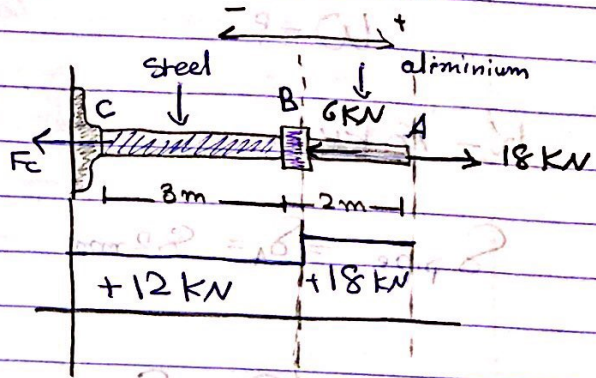 - +
Steel aliminium
C B 6KN A
Fc 18 KN
3m 2m
+12 KN +18 KN